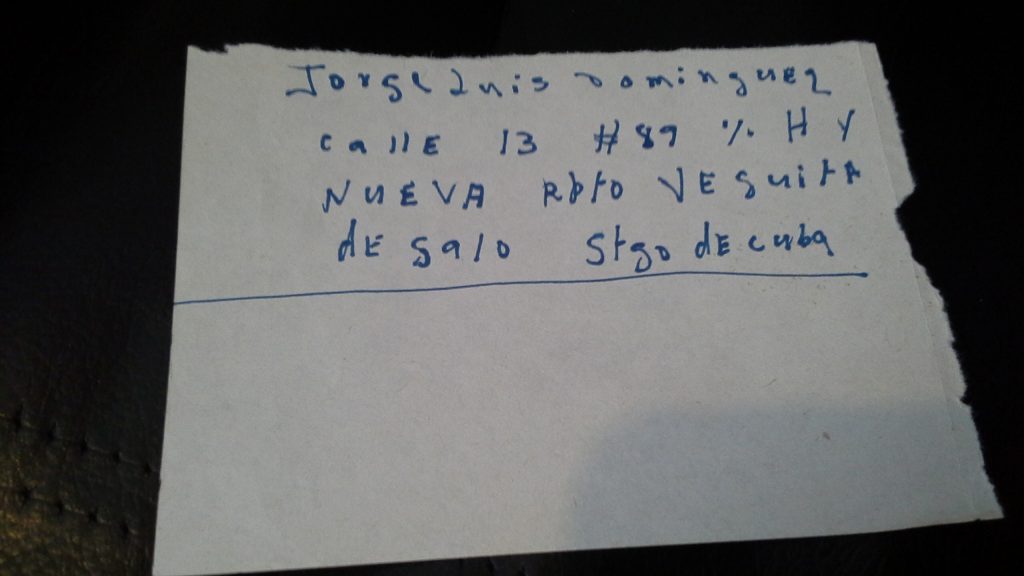 Jorge Luis Dominguez
Calle 13 #89 % H Y
NUEVA Rpto VEguitA
dE galo Stgo dE cuba